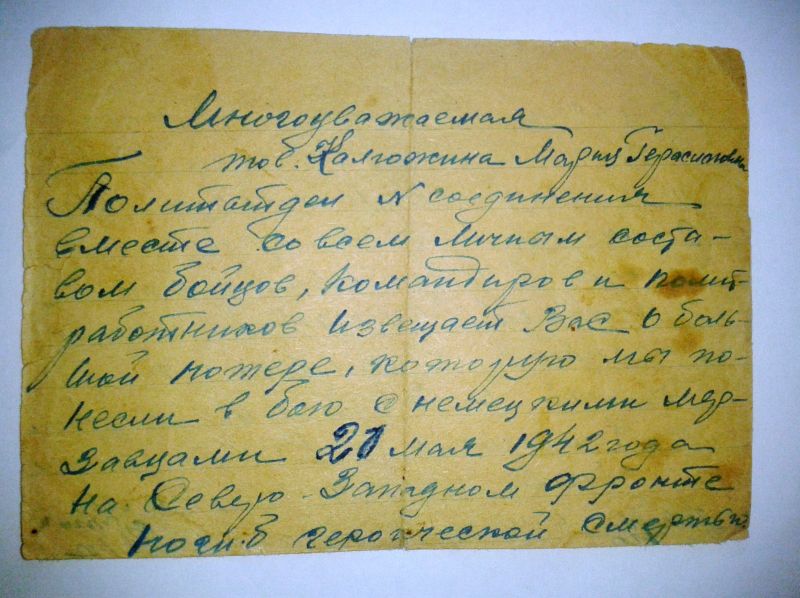 Многоуважаемая
тов. Калгожина Мария Герасимовна
Политотдел N соединения
вместе со всем личным соста-
вом бойцов, командиров и полит-
работников извещает Вас о боль-
шой потере, которую мы по-
несли в бою с немецкими мер-
завцами 21 мая 1942 года
на Северо-Западном фронте
погиб героической смертью